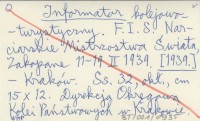 Informator kolejowo-
-turystyczny. F.I.S. Nar-
ciarskie Mistrzostwa Świata,
Zakopane 11-19 II 1939. [1939.]
- Kraków. Ss. 32, okł., cm
15 x 12. Dyrekcja Okręgowa
Kolei Państwowych w Krakowie.